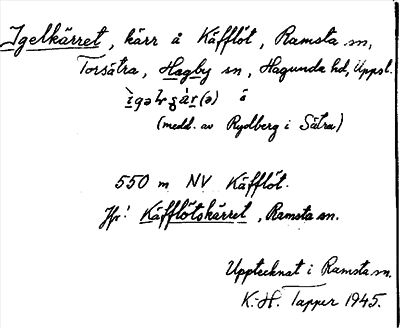 Igelkärret, kärr å Käfflöt, Ramsta sn,
Torsätra, Hagby sn, Hagunda hd, Uppl.
(medd. av Rydberg i Sätra)
550 m NV Käfflöt.
Jfr: Käfflötskärret, Ramsta sn.
Upptecknat i Ramsta sn.
K.-H. Tapper 1945.